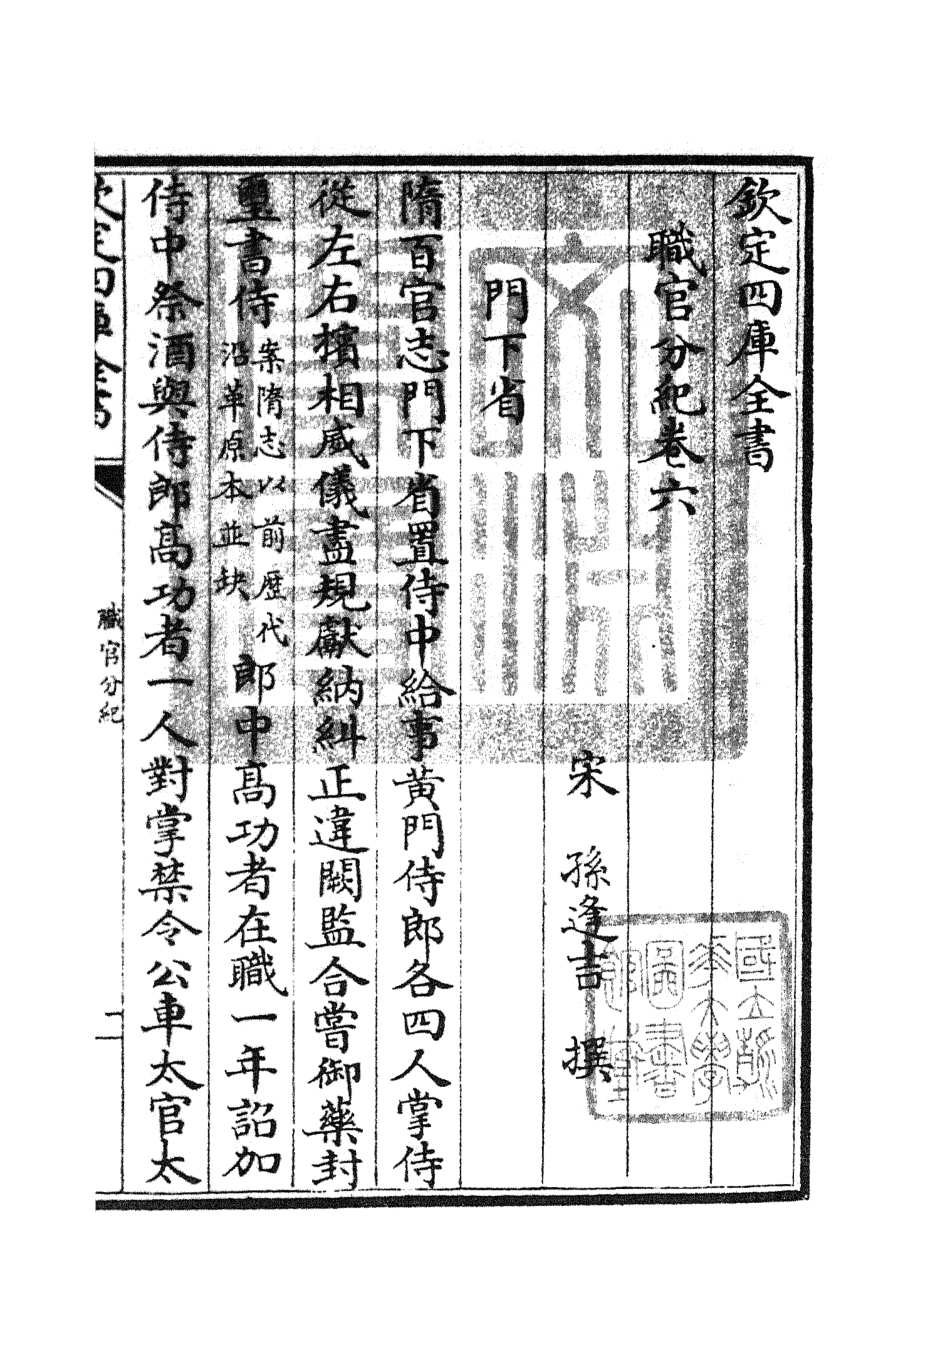 欽定四庫全書
職官分紀卷六
宋 孫逢吉 撰
門下省
隋百官志門下省置侍中給事黃門侍郎各四人掌侍
從左右擯相威儀盡規獻納糾正違闕監合嘗御藥封
璽書侍
案隋志以前歷代
沿革原本並缺
郎中高功者在職一年詔加
侍中祭酒與侍郎高功者一人對掌禁令公車太官太
欽定四庫全書
職官分紀
國立
圖書